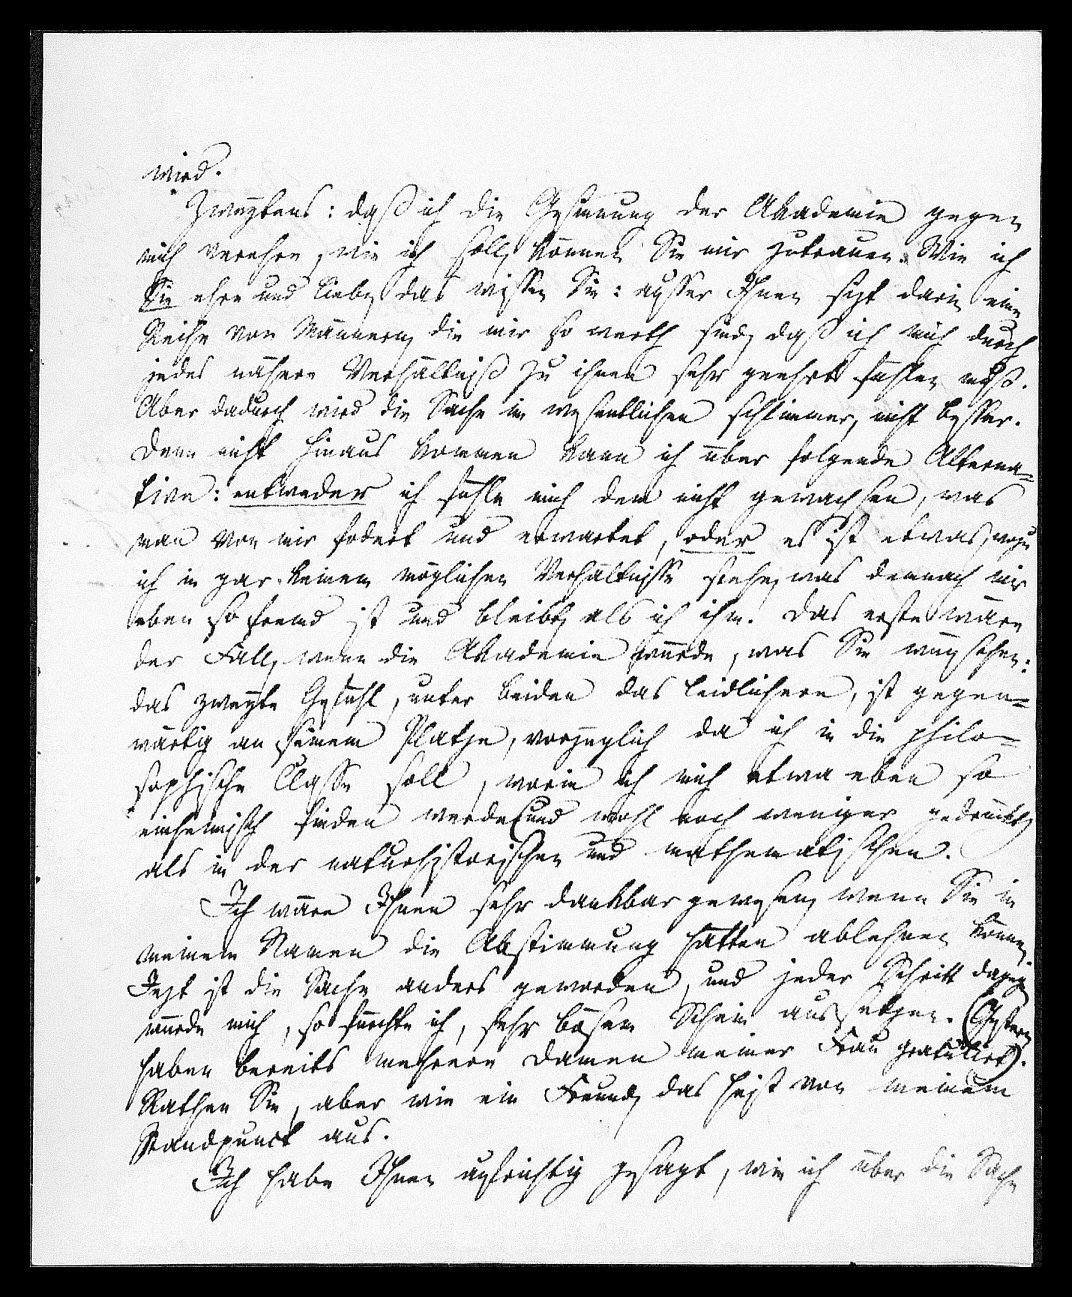 wird.
Zweytens: daß ich die Gesinnung der Akademie gegen
mich verehre, wie ich soll, können Sie mir zutrauen. Wie ich
Sie ehre und liebe, das wissen Sie: ausser Ihnen sizt darin eine
Reihe von Männern, die mir so werth sind, daß ich mich durch
jedes nähere Verhältniß zu ihnen sehr geehrt fühlen muß.
Aber dadurch wird die Sache im wesentlichen schlimmer, nicht besser.
Denn nicht hinaus kommen kann ich über folgende Alterna-
tive: entweder ich fühle mich dem nicht gewachsen, was
man von mir fodert und erwartet, oder es ist etwas, wozu
ich in gar keinem möglichen Verhältnisse stehe, was demnach mir
eben so fremd ist und bleibt, als ich ihm. Das erste wäre
der Fall, wenn die Akademie wüßte, was Sie wünschen:
das zweyte Gefühl, unter beiden das leidlichere, ist gegen-
wärtig an seinem Platze, vorzüglich da ich in die philo-
sophische Classe soll, worin ich mich etwa eben so
einheimisch finden werde (und wohl noch weniger gedrückt)
als in der naturhistorischen und mathematischen.
Ich wäre Ihnen sehr dankbar gewesen, wenn Sie in
meinem Namen die Abstimmung hätten ablehnen können.
Jezt ist die Sache anders geworden, und jeder Schritt dagegen
würde mich, so fürchte ich, sehr bösem Schein aussetzen. (Gestern
haben bereits mehrere Damen meiner Frau gratulirt).
Rathen Sie, aber wie ein Freund, das heist von meinem
Standpunct aus.
Ich habe Ihnen aufrichtig gesagt, wie ich über die Sache